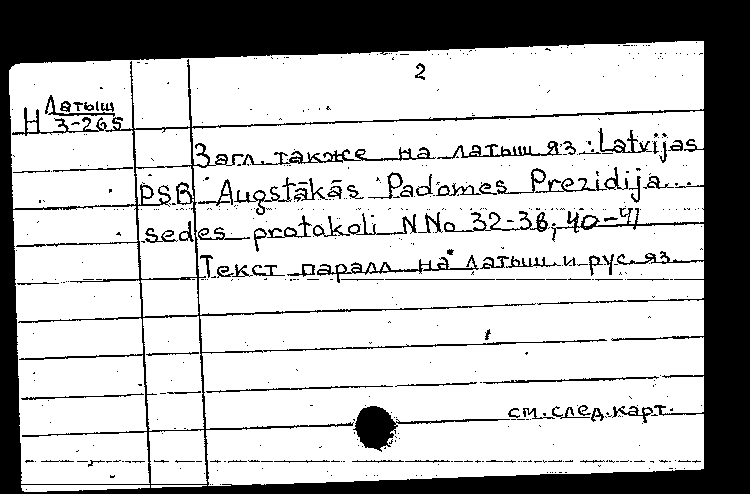 2
Н Латыш
3-265
Загл. также на латыш яз.: Latvijas
PSR Augstākās Padomes Prezidija...
sedes protokoli NNo 32-38; 40-41
Текст паралл на латыш. и рус. яз.
см. след. карт.